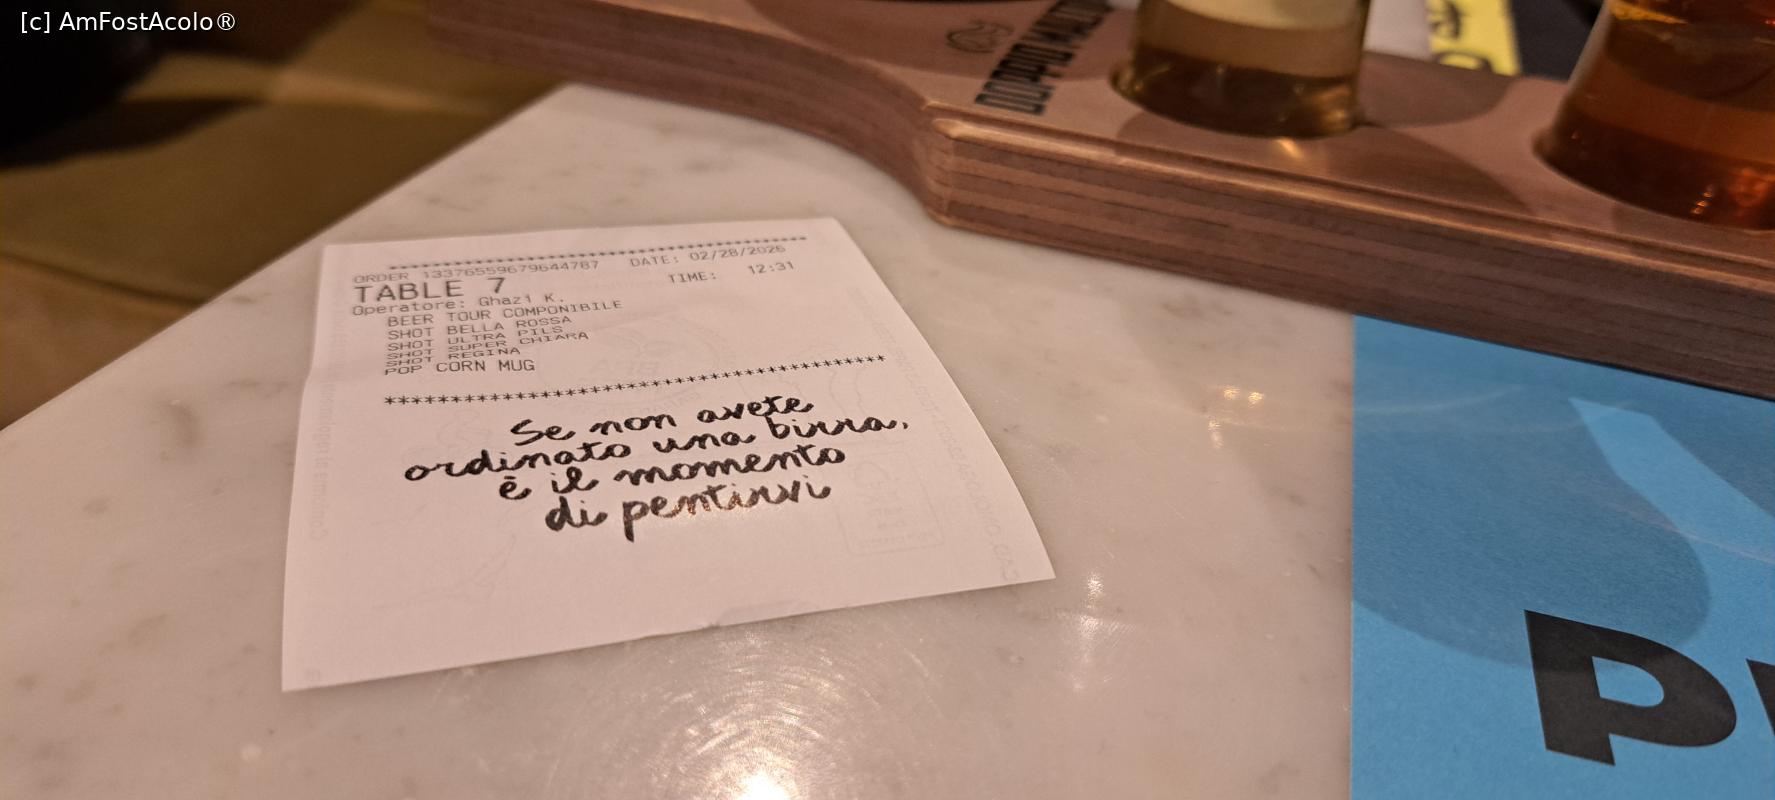 [c] AmFostAcolo®
DOPPIO MALTO
************************************************
ORDER 13376559679644787 DATE: 02/28/2026
TABLE 7 TIME: 12:31
Operatore: Ghazi K.
BEER TOUR COMPONIBILE
SHOT BELLA ROSSA
SHOT ULTRA PILS
SHOT SUPER CHIARA
SHOT REGINA
POP CORN MUG
************************************************
Se non avete
ordinato una birra,
è il momento
di pentirvi